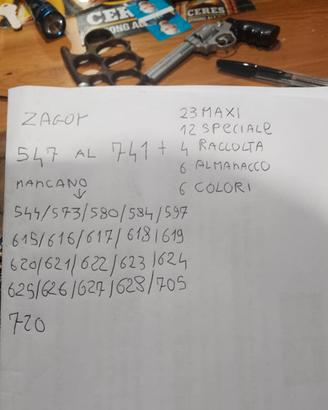 CERES
CERES
ZAGOR
547 AL 741 +
23 MAXI
12 SPECIALE
4 RACCOLTA
6 ALMANACCO
6 COLORI
MANCANO
544/573/580/584/597
615/616/617/618/619
620/621/622/623/624
625/626/627/628/705
720